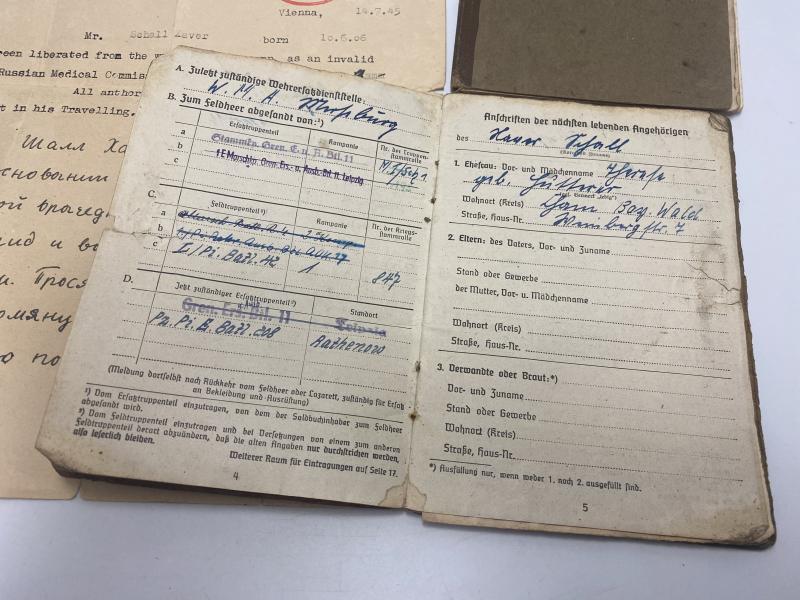 Vienna, 14.7.45
Mr. Schall Xaver born 10.6.06
een liberated from the w as an invalid
Russian Medical Commis
All author
t in his Travelling.
Шалл Ха
сновании
ой врачед
лид и вс
и. Прося
о по
A. Zuletzt zuständige Wehrersatzdienststelle:
W. M. A.
B. Zum Feldheer abgesandt von:¹)
Ersatztruppenteil Kompanie Nr. der Truppenstammrolle
a Stammkp. Gren. E. u. A. Btl. 11
b 1. Marschkp. Gren. Ers.- u. Ausb. Btl. 11, Leipzig
c
C. Feldtruppenteil²) Kompanie Nr. der Kriegsstammrolle
a
b
c I/Pi. Batl. 42 1 847
D. Jetzt zuständiger Ersatztruppenteil²) Standort
Gren. Ers. Btl. 11 Leipzig
Pz. Pi. E. Batl. 208 Rathenow
(Meldung dortselbst nach Rückkehr vom Feldheer oder Lazarett, zuständig für Ersatz
an Bekleidung und Ausrüstung)
¹) Vom Ersatztruppenteil einzutragen, von dem der Soldbuchinhaber zum Feldheer
abgesandt wird.
²) Vom Feldtruppenteil einzutragen und bei Versetzungen von einem zum anderen
Feldtruppenteil derart abzuändern, daß die alten Angaben nur durchstrichen werden,
also leserlich bleiben.
Weiterer Raum für Eintragungen auf Seite 17.
4
Anschriften der nächsten lebenden Angehörigen
des Xaver Schall
1. Ehefrau: Vor- und Mädchenname Therese
geb. Hütterer
Wohnort (Kreis) Cham Bay. Wald
Straße, Haus-Nr. 7
2. Eltern: des Vaters, Vor- und Zuname
Stand oder Gewerbe
der Mutter, Vor- u. Mädchenname
Wohnort (Kreis)
Straße, Haus-Nr.
3. Verwandte oder Braut:*)
Vor- und Zuname
Stand oder Gewerbe
Wohnort (Kreis)
Straße, Haus-Nr.
*) Ausfüllung nur, wenn weder 1. noch 2. ausgefüllt sind.
5